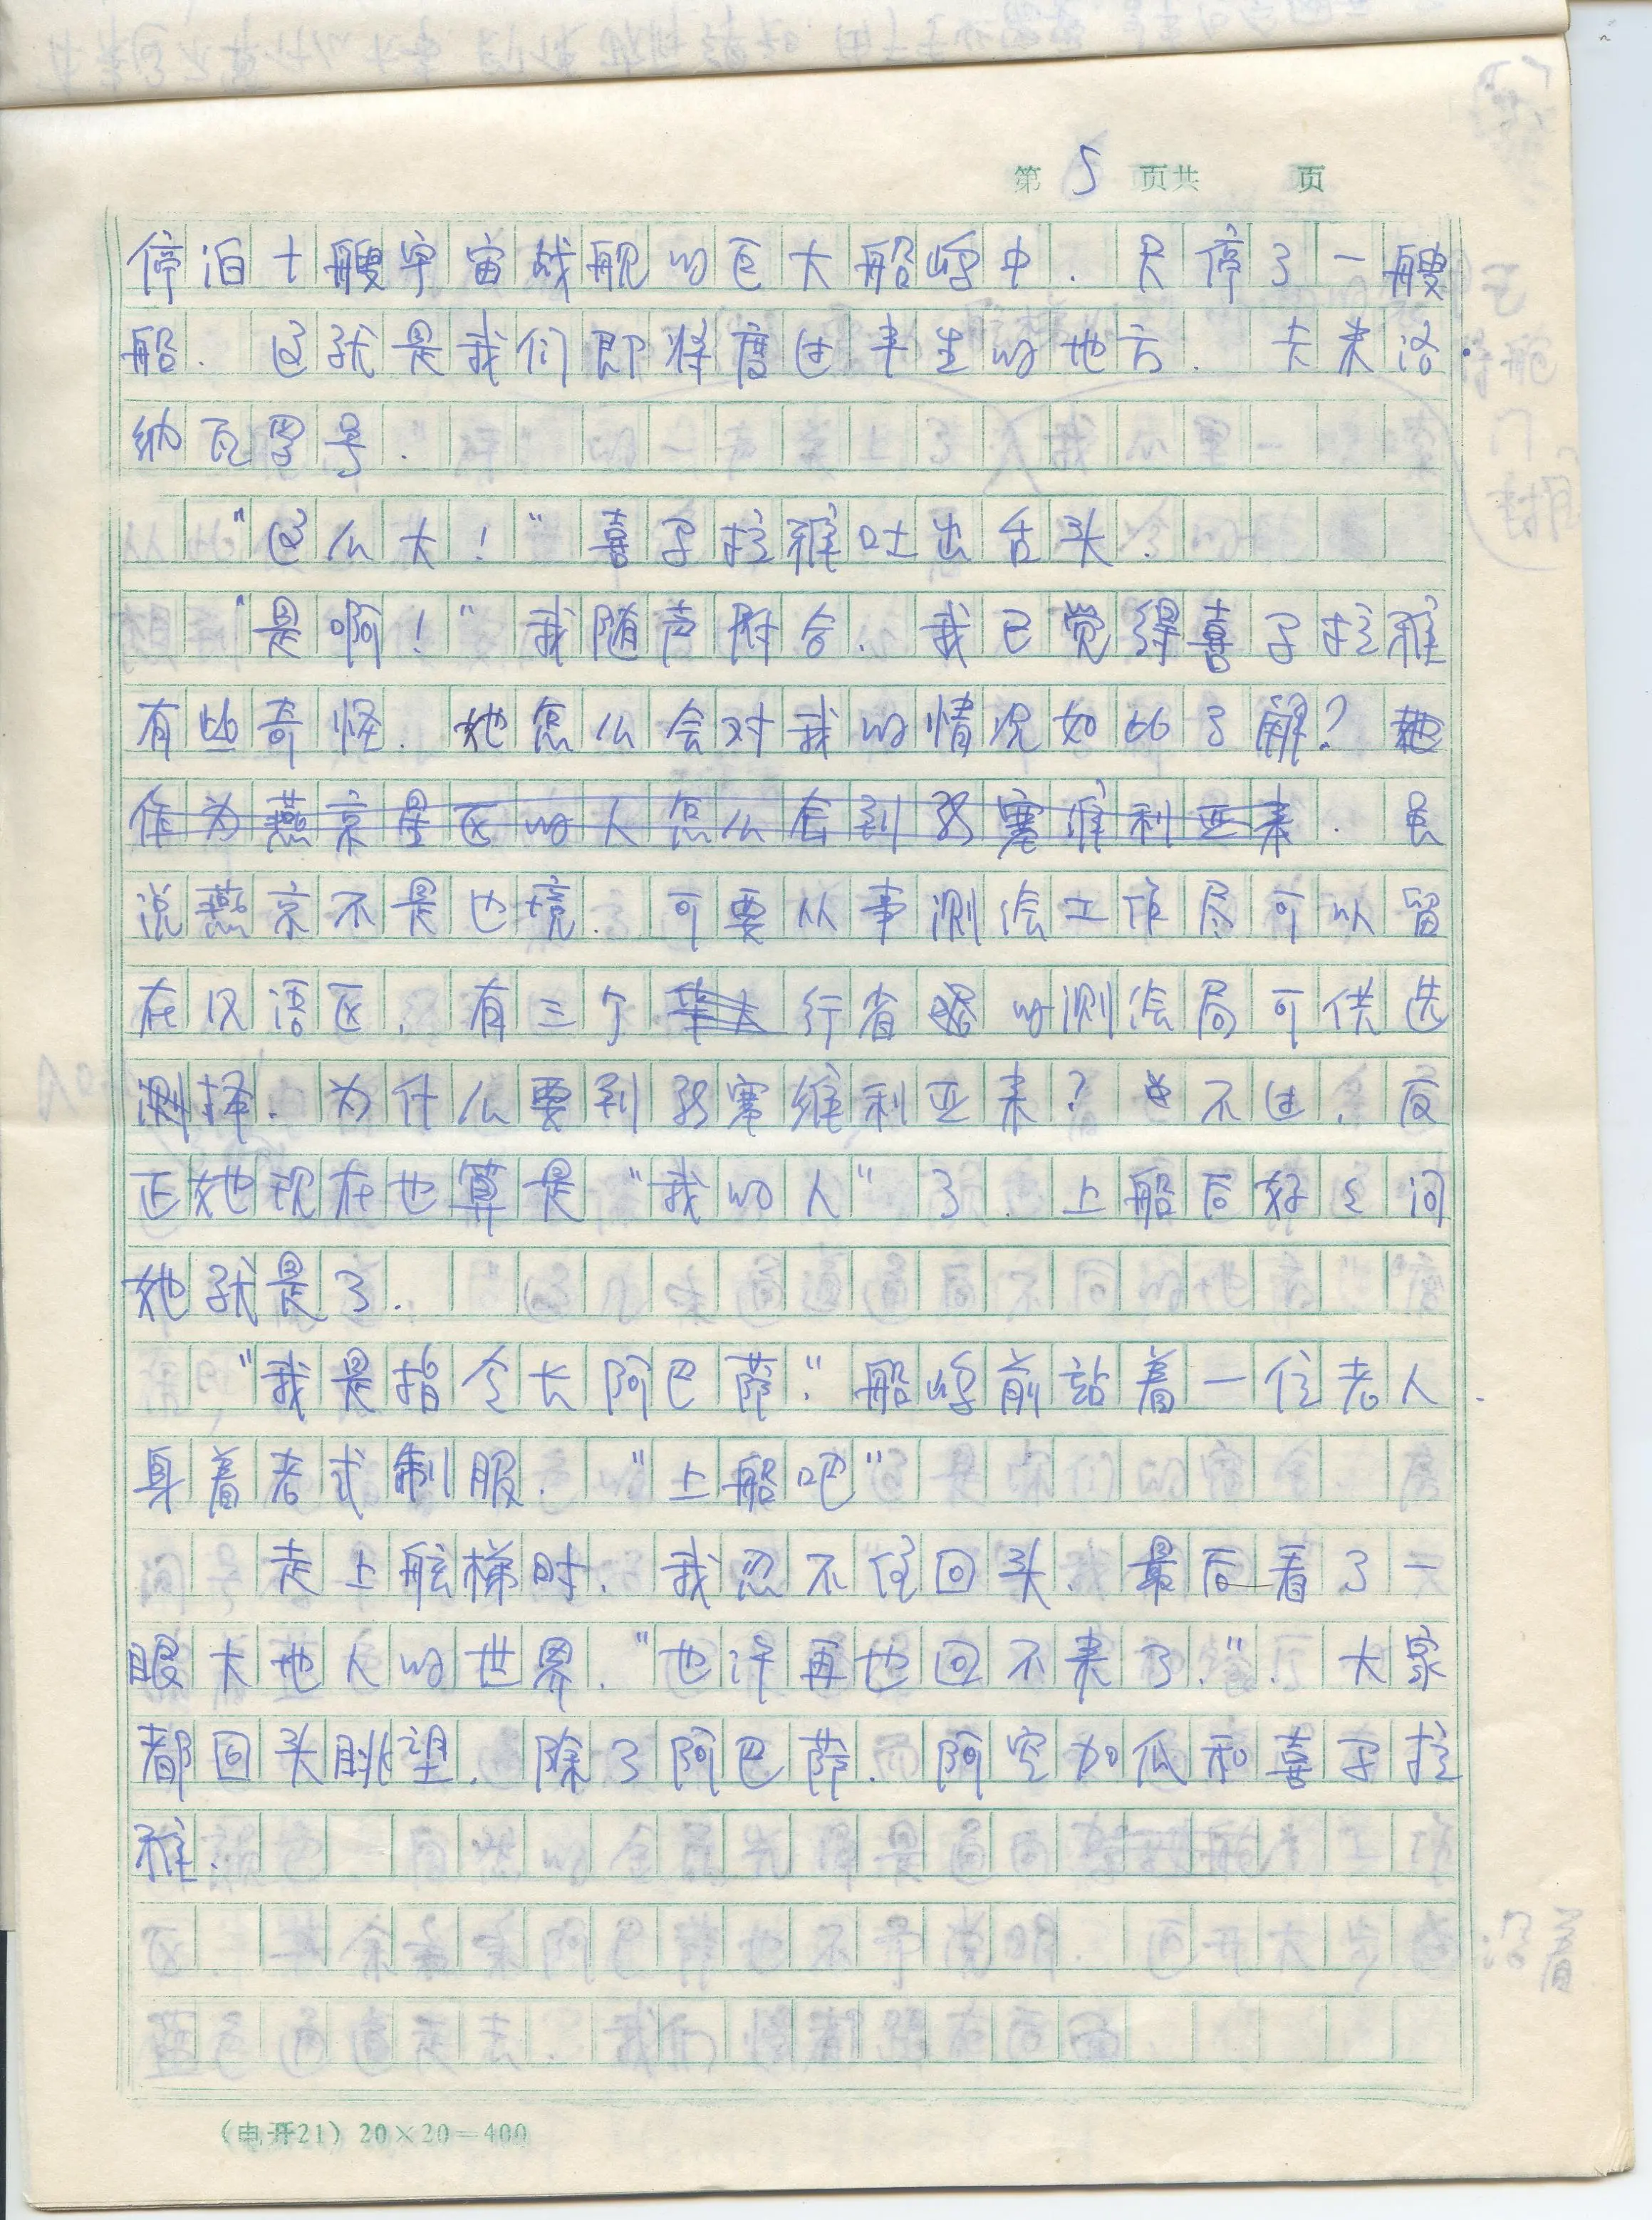 第 5 页共 页
停泊十艘宇宙战舰的巨大船坞中.只停了一艘
船.这就是我们即将度过半生的地方.卡来洛
纳瓦罗号.
"这么大!"喜马拉雅吐出舌头.
"是啊!"我随声附合.我已觉得喜马拉雅
有些奇怪.她怎么会对我的情况如此了解?
作为燕京星区的人怎么会到塞维利亚来.虽
说燕京不是边境.可要从事测绘工作尽可以留
在汉语区.有三个行省的测绘局可供选
择.为什么要到塞维利亚来?不过.反
正她现在也算是"我的人"了.上船后好々问
她就是了.
"我是指令长阿巴萨."船坞前站着一位老人.
身着老式制服."上船吧"
走上舷梯时.我忍不住回头.最后看了一
眼大地人的世界."也许再也回不来了.".大家
都回头眺望.除了阿巴萨.阿空加瓜和喜马拉
雅.
(电开21) 20×20=400